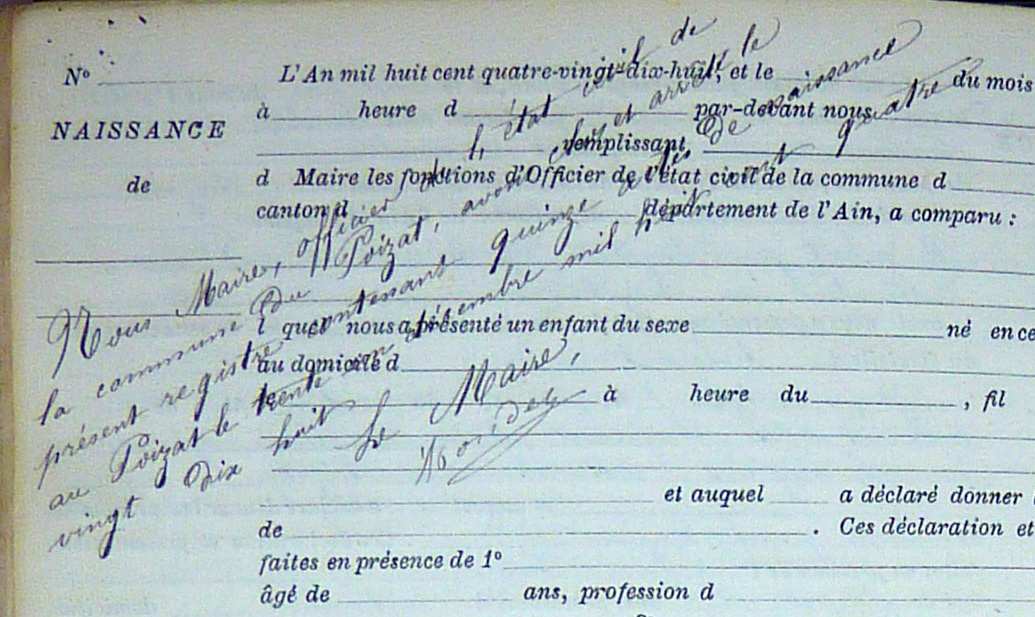 N° L'An mil huit cent quatre-vingt-dix-huit, et le du mois
à heure d par-devant nous
NAISSANCE
remplissant
de
d Maire les fonctions d'Officier de l'état civil de la commune d
canton d département de l'Ain, a comparu :
l quel nous a présenté un enfant du sexe né en ce
au domicile d
à heure du , fil
et auquel a déclaré donner
de . Ces déclaration et
faites en présence de 1°
âgé de ans, profession d
Nous Maire, officier de l'état civil de
la commune du Poizat, avons clos et arrêté le
présent registre contenant quinze actes de naissance
au Poizat le trente un décembre mil huit cent quatre
vingt dix huit
Le Maire,